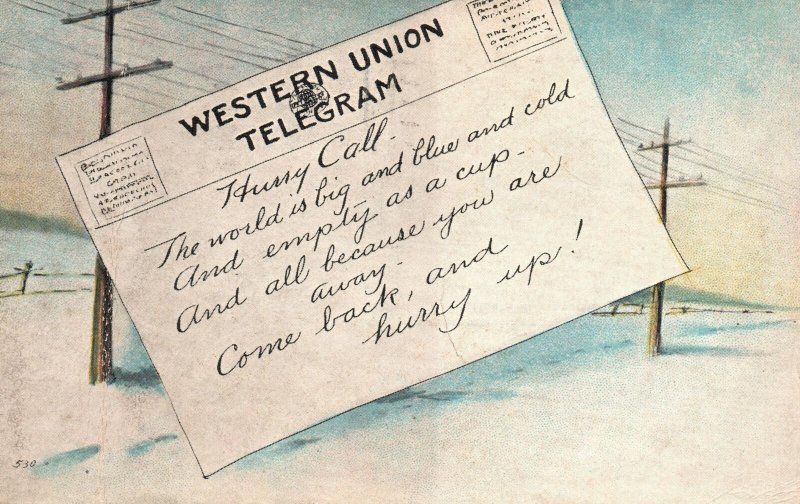 WESTERN UNION
TELEGRAM
Hurry Call.
The world is big and blue and cold
And empty as a cup.
And all because you are
away.
Come back, and
hurry up!
530